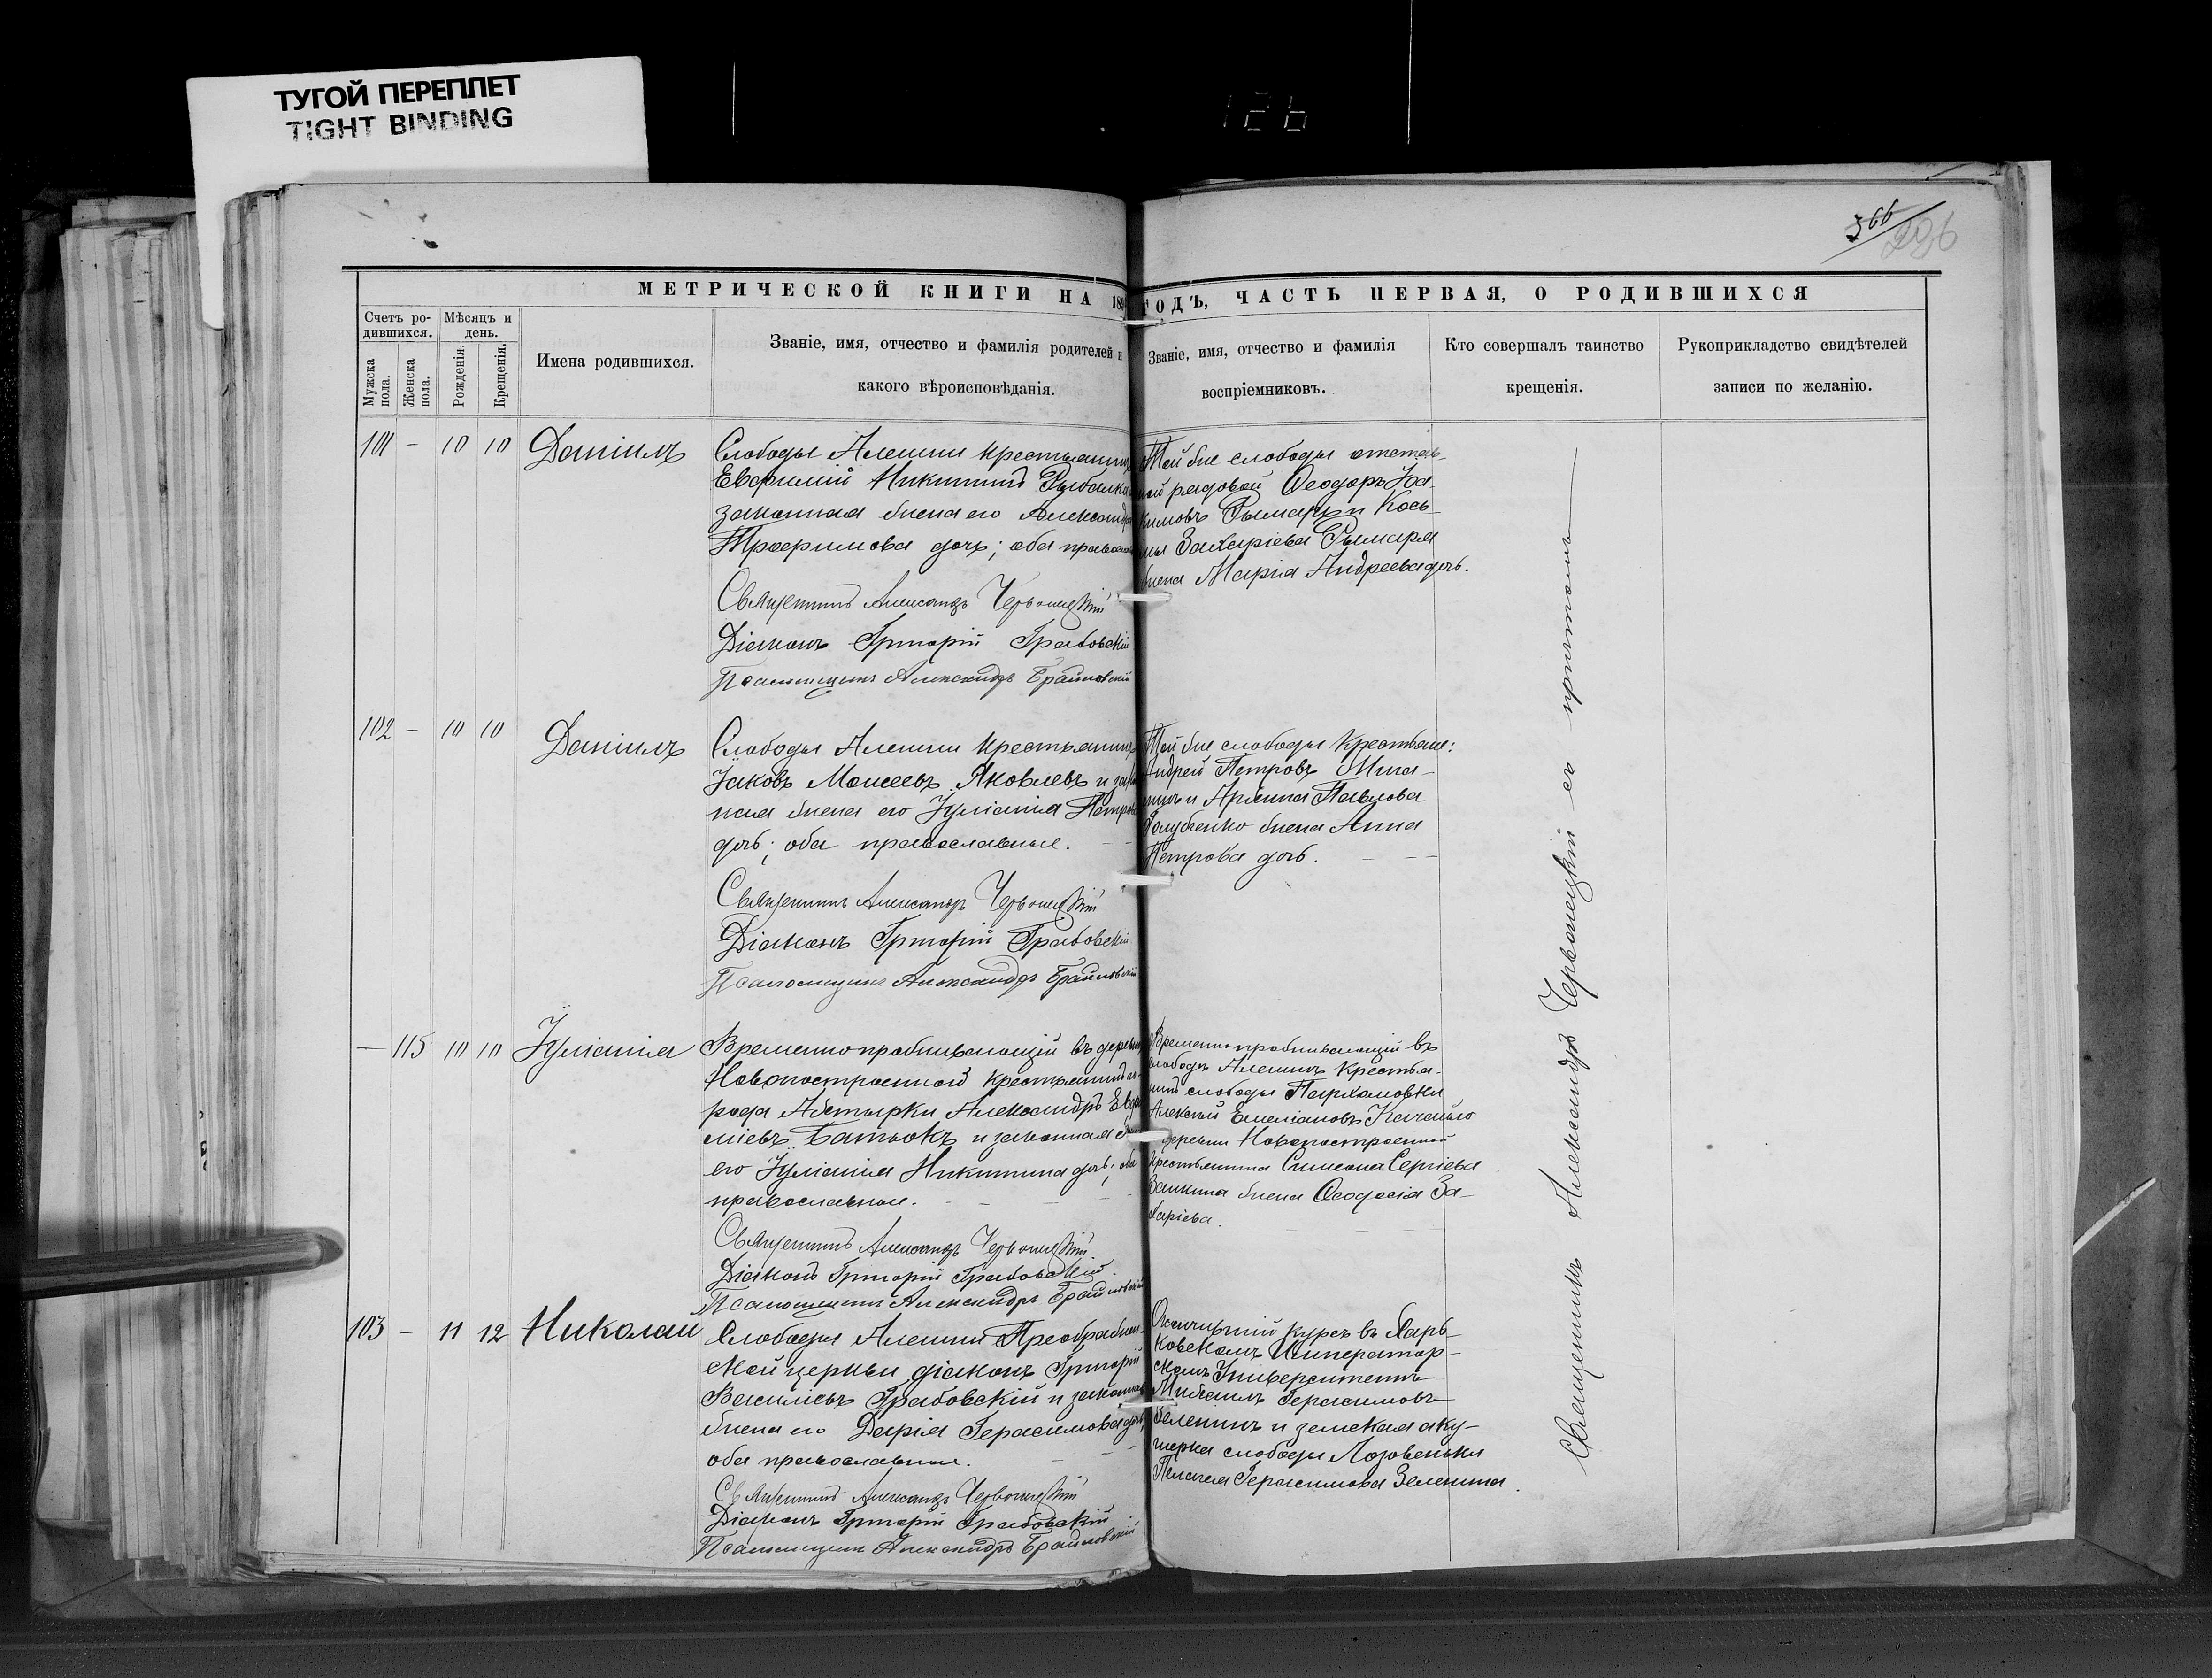 ТУГОЙ ПЕРЕПЛЕТ
TIGHT BINDING
126
366
296
МЕТРИЧЕСКОЙ КНИГИ НА 189
ГОДЪ, ЧАСТЬ ПЕРВАЯ, О РОДИВШИХСЯ
Счетъ ро-
дившихся.
Мѣсяцъ и
день.
Мужска
пола.
Женска
пола.
Рожденія.
Крещенія.
Имена родившихся.
Званіе, имя, отчество и фамилія родителей и
какого вѣроисповѣданія.
Званіе, имя, отчество и фамилія
воспріемниковъ.
Кто совершалъ таинство
крещенія.
Рукоприкладство свидѣтелей
записи по желанію.
101 - 10 10 Даніилъ
Слободы Алешни крестьянинъ
Евфимій Никитинъ Рыбалка
законная жена его Александра
Трофимова дочь; оба православ
Священникъ Александръ Червонецкій
Діаконъ Григорій Грабовскій
Псаломщикъ Александръ Браиловскій
Той же слободы отстав-
ной рядовой Ѳеодоръ Іоа-
кимовъ Рымарь и Кось-
мы Захаріева Рымаря
жена Марія Андреева дочь.
102 - 10 10 Даніилъ
Слободы Алешни крестьянинъ
Іаковъ Моисеевъ Яковлевъ и закон
ная жена его Іуліанія Петрова
дочь; оба православные.
Священникъ Александръ Червонецкій
Діаконъ Григорій Грабовскій
Псаломщикъ Александръ Браиловскій
Той же слободы крестьяне:
Андрей Петровъ
и Павлова
Голубенко жена Анна
Петрова дочь.
- 115 10 10 Іуліанія
Временно проживающій въ деревнѣ
Новопостроенной крестьянинъ го-
рода Ахтырки Александръ Евфи
міевъ Батьокъ и законная жена
его Іуліанія Никитина дочь; оба
православные.
Священникъ Александръ Червонецкій
Діаконъ Григорій Грабовскій
Псаломщикъ Александръ Браиловскій
Временно проживающій въ
слободѣ Алешнѣ крестья-
нинъ слободы Пархомовки
Алексѣй Емеліановъ
деревни Новопостроенной
крестьянина Симеона Сергіева
Заикина жена Ѳеодосія За-
харіева.
103 - 11 12 Николай
Слободы Алешни Преображен-
ской церкви діаконъ Григорій
Васильевъ Грабовскій и законная
жена его Дарія Герасимова дочь,
оба православные.
Священникъ Александръ Червонецкій
Діаконъ Григорій Грабовскій
Псаломщикъ Александръ Браиловскій
Окончившій курсъ въ Харь-
ковскомъ Император-
скомъ Университетѣ
Михаилъ Герасимовъ
Зеленинъ и земская аку-
шерка слободы Лозовеньки
Пелагея Герасимова Зеленина.
Священникъ Александръ Червонецкій съ причтомъ